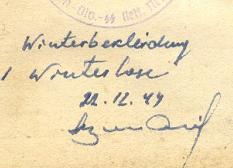 Div.-SS
Winterbekleidung
1 Winterhose
22.12.44